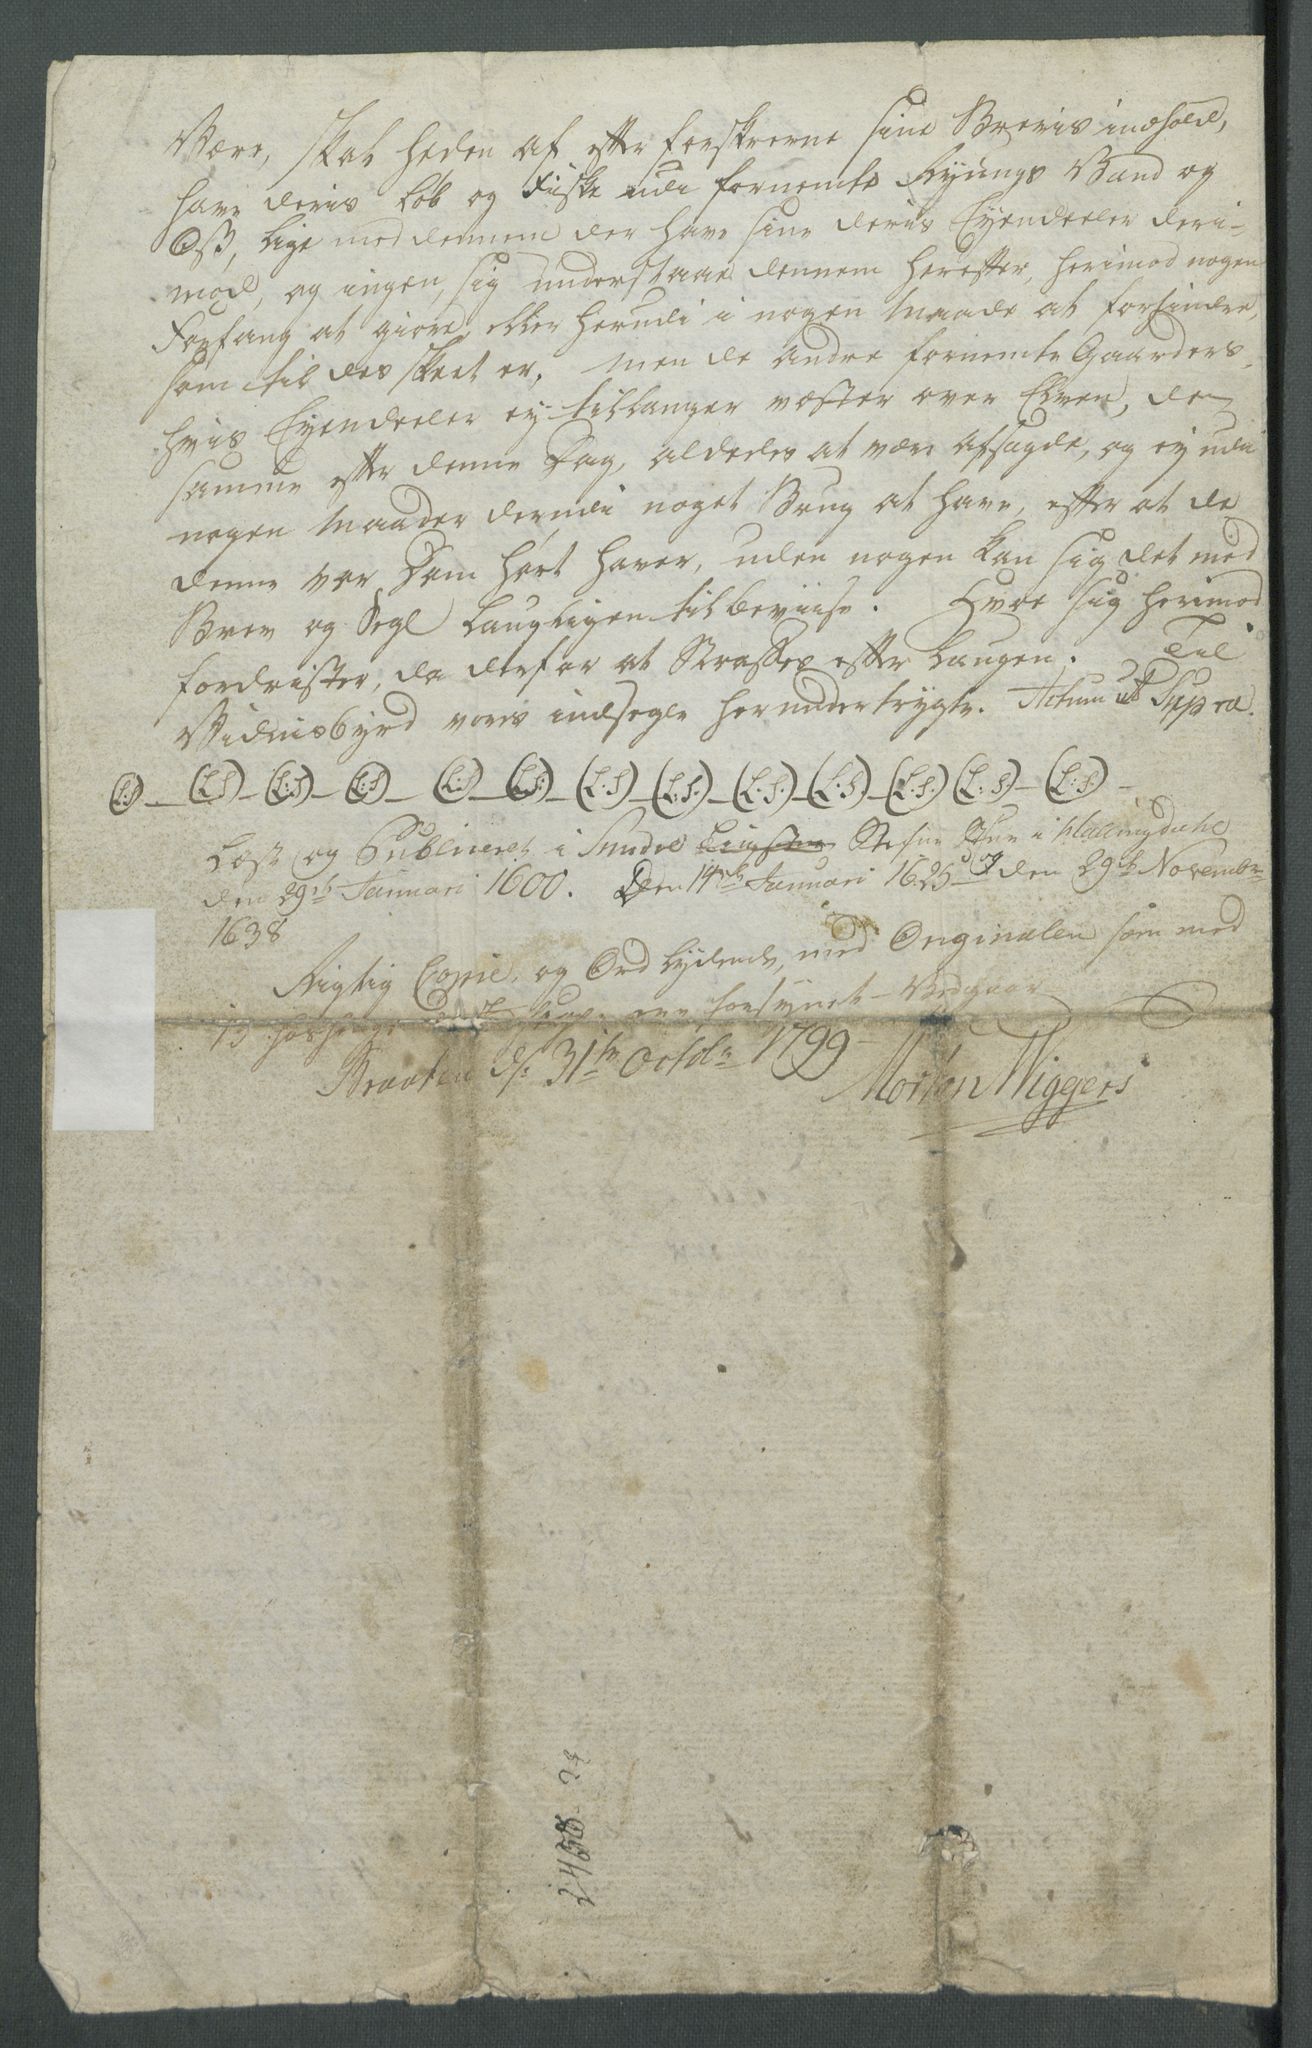 Være, skal heden af efter forskrevne sine Brevis indhold,
have deris Lob og Fiske udi fornemte Ryungs Vand og
Oss, lige med dennem der have sine deris Eyendeeler deri-
mod, og ingen, sig understaae dennem herefter, herimod nogen
Forfang at giøre, eller herudi i nogen Maade at forhindre,
som til des skeet er, men de andre fornemte Gaarders,
hvis Eyendeeler ey tillanger væster over Elven, de
samme efter denne Dag, aldeeles at være afsagde, og ey udi
nogen Maader derudi noget Brug at have, efter at de
denne vor Dom hørt haver, uden nogen kan sig det med
Brev og Segl Laugligen tilbeviise. Hvoe sig herimod
fordrister, da derfor at Straffes efter Laugen. Til
Vidnisbyrd voris indsegle herundertrygte. Actum ut Supra.
(L:S) – (L:S) – (L:S) – (L:S) – (L:S) – (L:S) – (L:S) – (L:S.) – (L:S.) – (L:S) – (L:S.) (L:S) – (L:S.) –
Læst og Publiceret i Aendre Stefne Stue i Hallingdahl
den 29de Januari 1600. Den 14de Januari 1625 og den 29de Novembr
1638
Rigtig Copie, og Ord Lydende, med Originalen som med
13 hoshengt er forsynet – Vedgaar
Braaten d: 31te Octobr 1799 –
Morten Wiggers
2458. 24